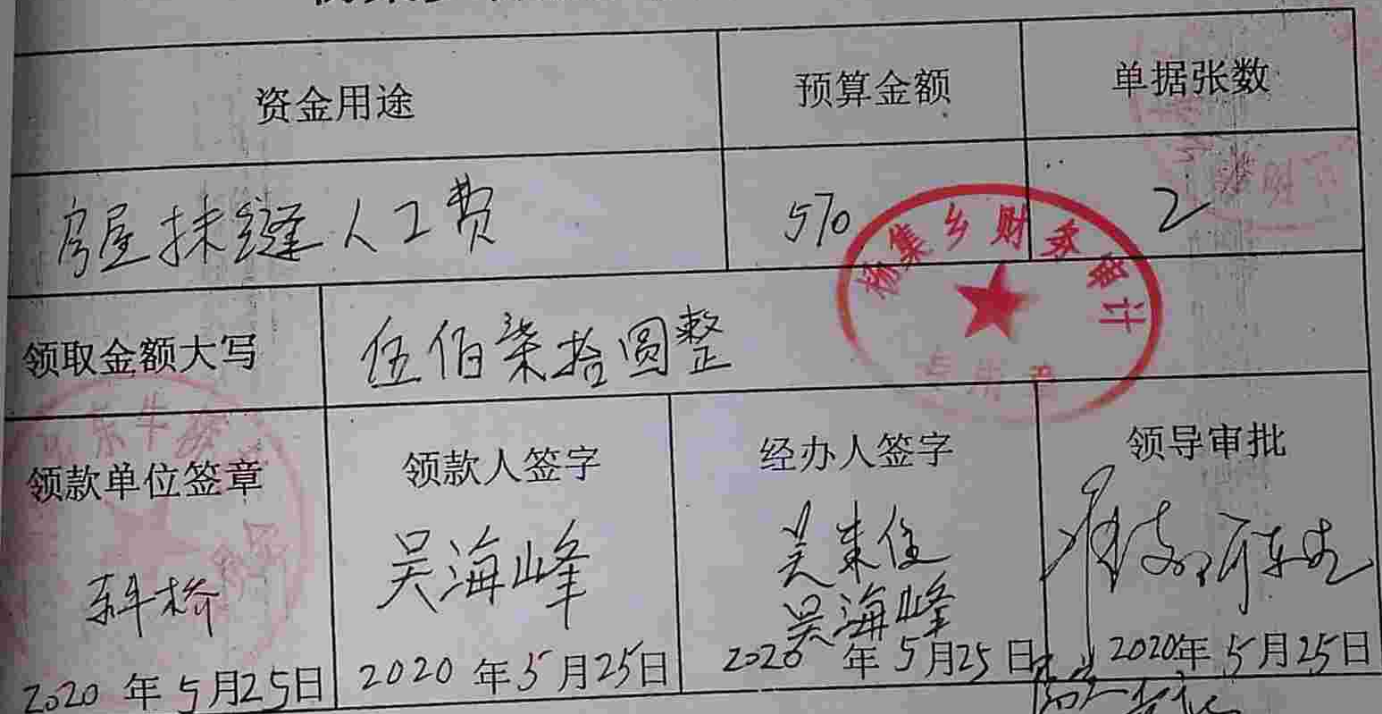 资金用途 预算金额 单据张数
房屋抹缝人工费 570 2
杨集乡财务审计
专用章
领取金额大写 伍佰柒拾圆整
领款单位签章 领款人签字 经办人签字 领导审批
东牛桥 吴海峰 吴来住
吴海峰
2020年5月25日 2020年5月25日 2020年5月25日 2020年5月25日